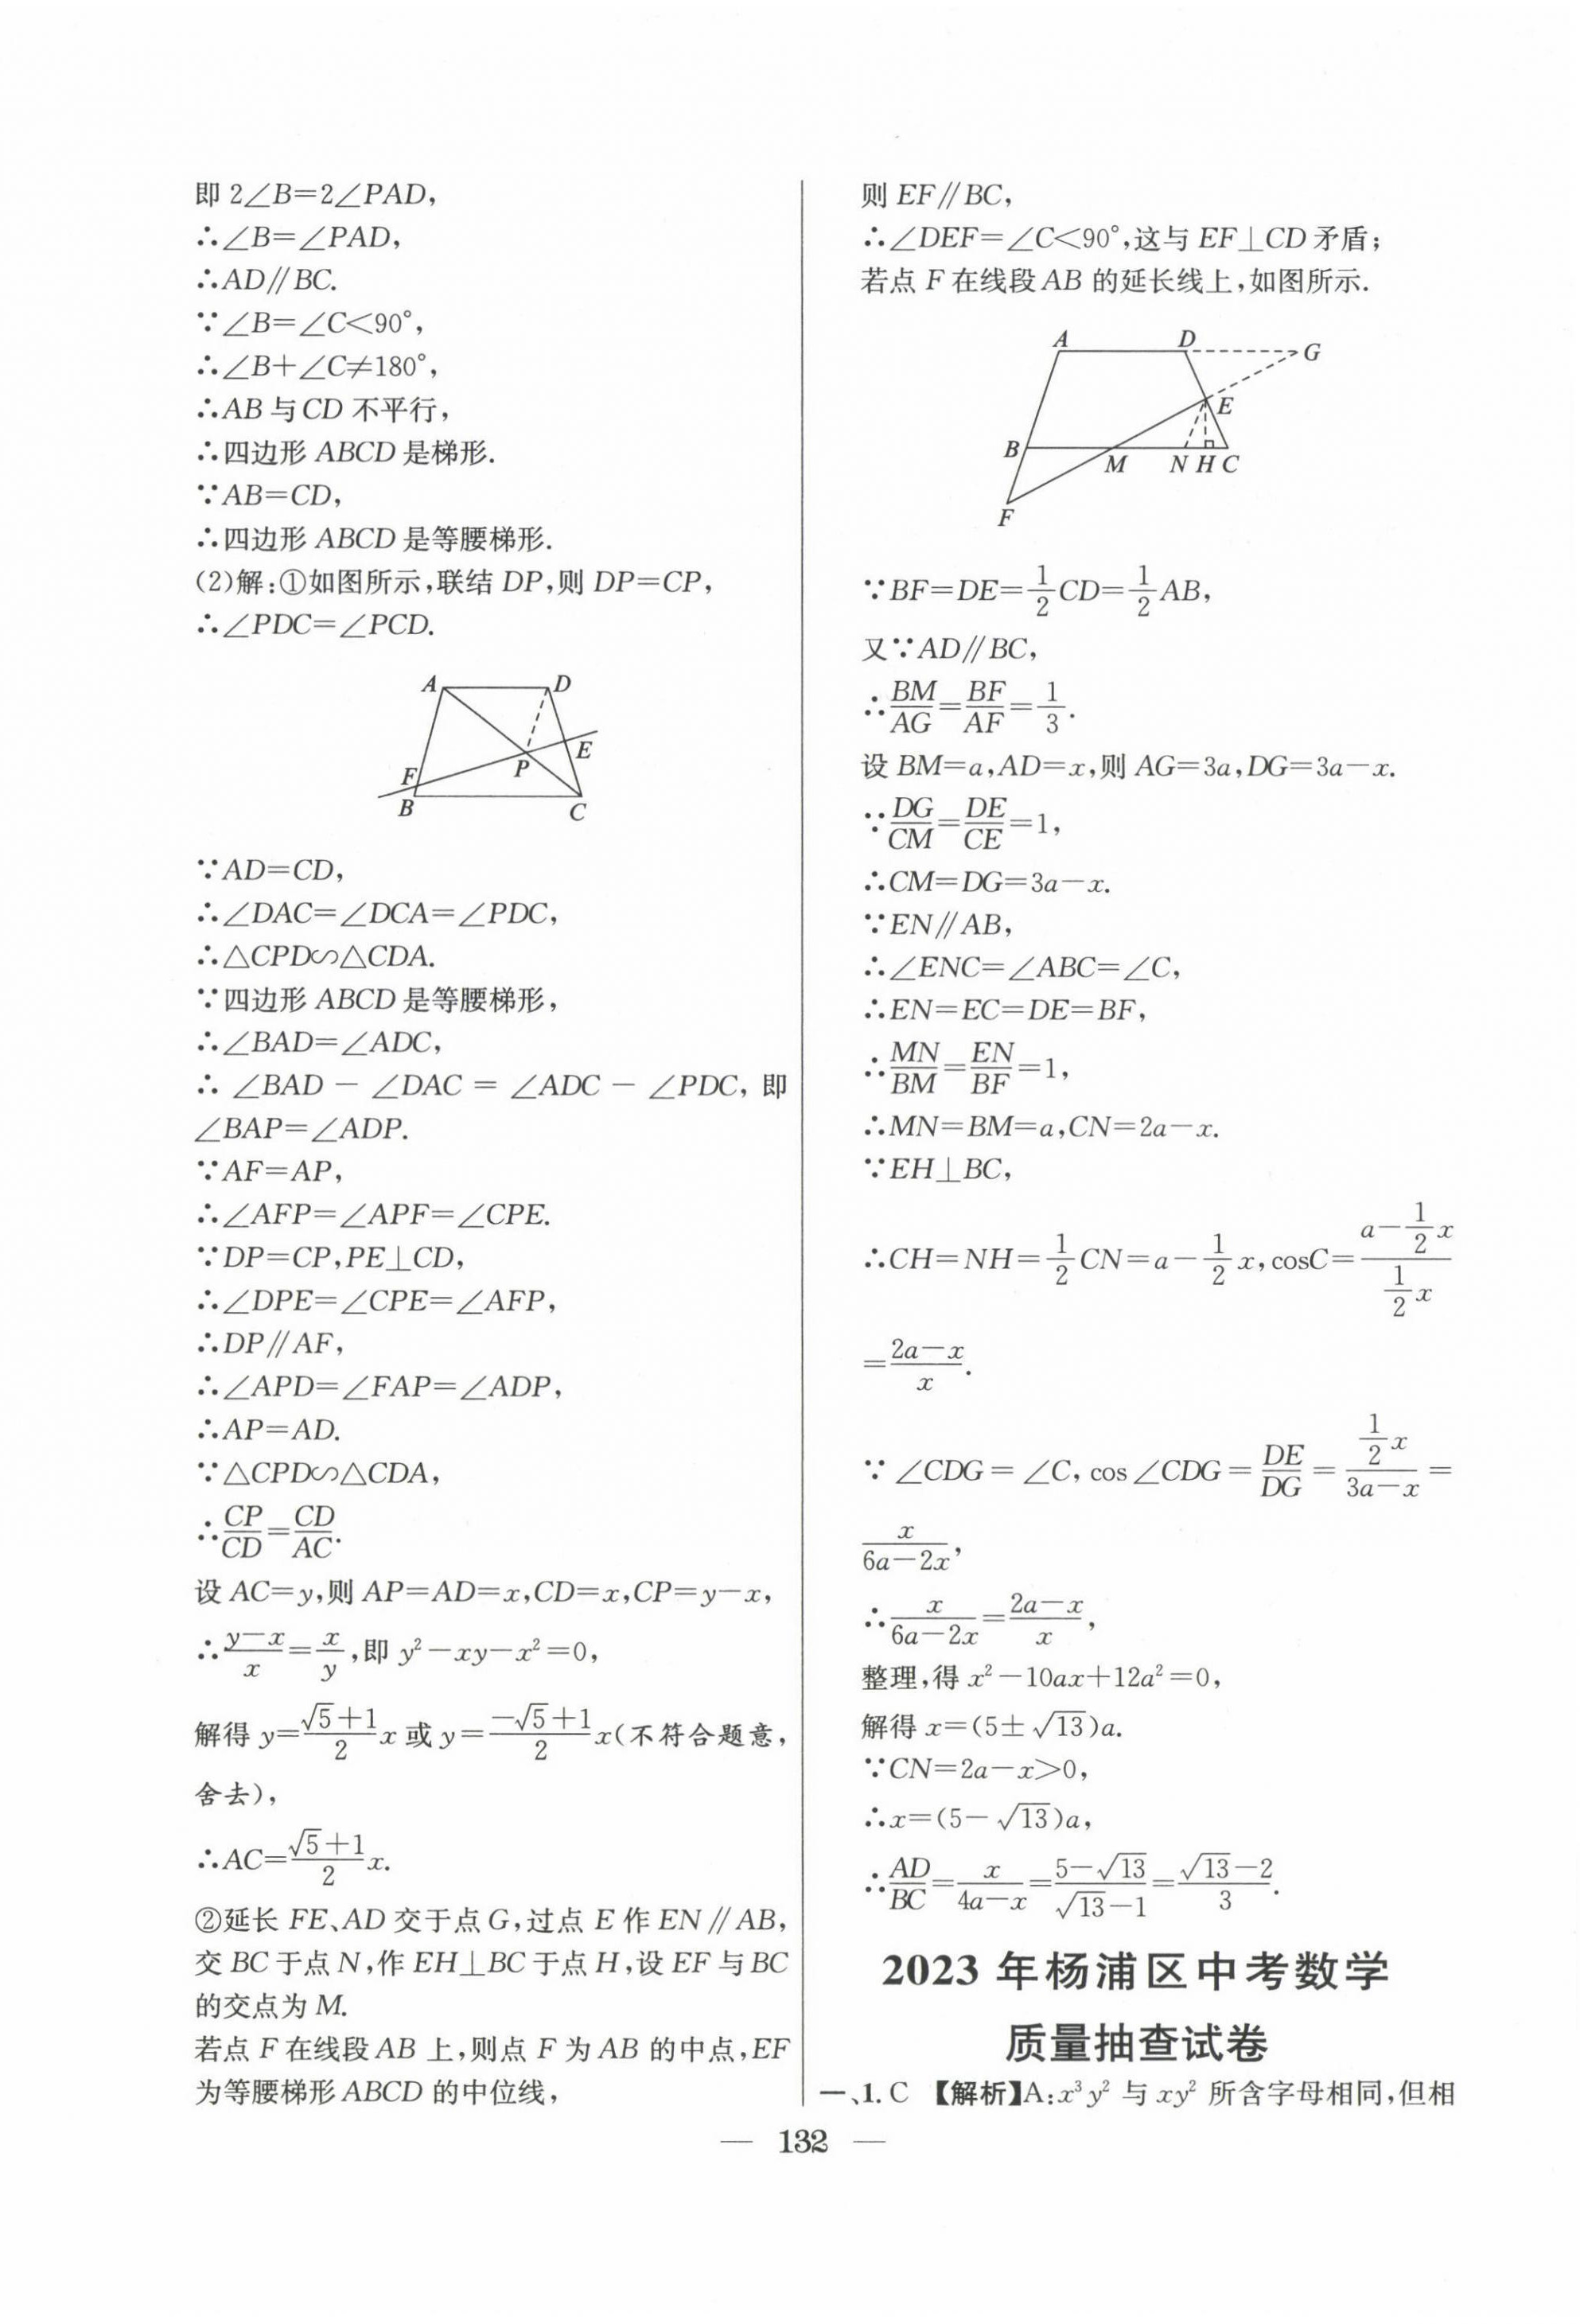 即 2∠B=2∠PAD,
∴∠B=∠PAD,
∴AD∥BC.
∵∠B=∠C<90°,
∴∠B+∠C≠180°,
∴AB 与 CD 不平行,
∴四边形 ABCD 是梯形.
∵AB=CD,
∴四边形 ABCD 是等腰梯形.
(2)解:①如图所示,联结 DP,则 DP=CP,
∴∠PDC=∠PCD.
A D
E
P
F
B C
∵AD=CD,
∴∠DAC=∠DCA=∠PDC,
∴△CPD∽△CDA.
∵四边形 ABCD 是等腰梯形,
∴∠BAD=∠ADC,
∴ ∠BAD − ∠DAC = ∠ADC − ∠PDC, 即
∠BAP=∠ADP.
∵AF=AP,
∴∠AFP=∠APF=∠CPE.
∵DP=CP,PE⊥CD,
∴∠DPE=∠CPE=∠AFP,
∴DP∥AF,
∴∠APD=∠FAP=∠ADP,
∴AP=AD.
∵△CPD∽△CDA,
∴CP/CD=CD/AC.
设 AC=y,则 AP=AD=x,CD=x,CP=y−x,
∴(y−x)/x=x/y,即 y²−xy−x²=0,
解得 y=(√5+1)/2 x 或 y=(−√5+1)/2 x(不符合题意,
舍去),
∴AC=(√5+1)/2 x.
②延长 FE、AD 交于点 G,过点 E 作 EN∥AB,
交 BC 于点 N,作 EH⊥BC 于点 H,设 EF 与 BC
的交点为 M.
若点 F 在线段 AB 上,则点 F 为 AB 的中点,EF
为等腰梯形 ABCD 的中位线,
则 EF∥BC,
∴∠DEF=∠C<90°,这与 EF⊥CD 矛盾;
若点 F 在线段 AB 的延长线上,如图所示.
A D G
E
B M N H C
F
∵BF=DE=1/2 CD=1/2 AB,
又∵AD∥BC,
∴BM/AG=BF/AF=1/3.
设 BM=a,AD=x,则 AG=3a,DG=3a−x.
∵DG/CM=DE/CE=1,
∴CM=DG=3a−x.
∵EN∥AB,
∴∠ENC=∠ABC=∠C,
∴EN=EC=DE=BF,
∴MN/BM=EN/BF=1,
∴MN=BM=a,CN=2a−x.
∵EH⊥BC,
∴CH=NH=1/2 CN=a−1/2 x,cosC=(a−1/2 x)/(1/2 x)
=(2a−x)/x.
∵ ∠CDG= ∠C, cos ∠CDG=DE/DG=(1/2 x)/(3a−x)=
x/(6a−2x),
∴x/(6a−2x)=(2a−x)/x,
整理,得 x²−10ax+12a²=0,
解得 x=(5±√13)a.
∵CN=2a−x>0,
∴x=(5−√13)a,
∴AD/BC=x/(4a−x)=(5−√13)/(√13−1)=(√13−2)/3.
2023 年杨浦区中考数学
质量抽查试卷
一、1. C 【解析】A:x³y² 与 xy² 所含字母相同,但相
— 132 —